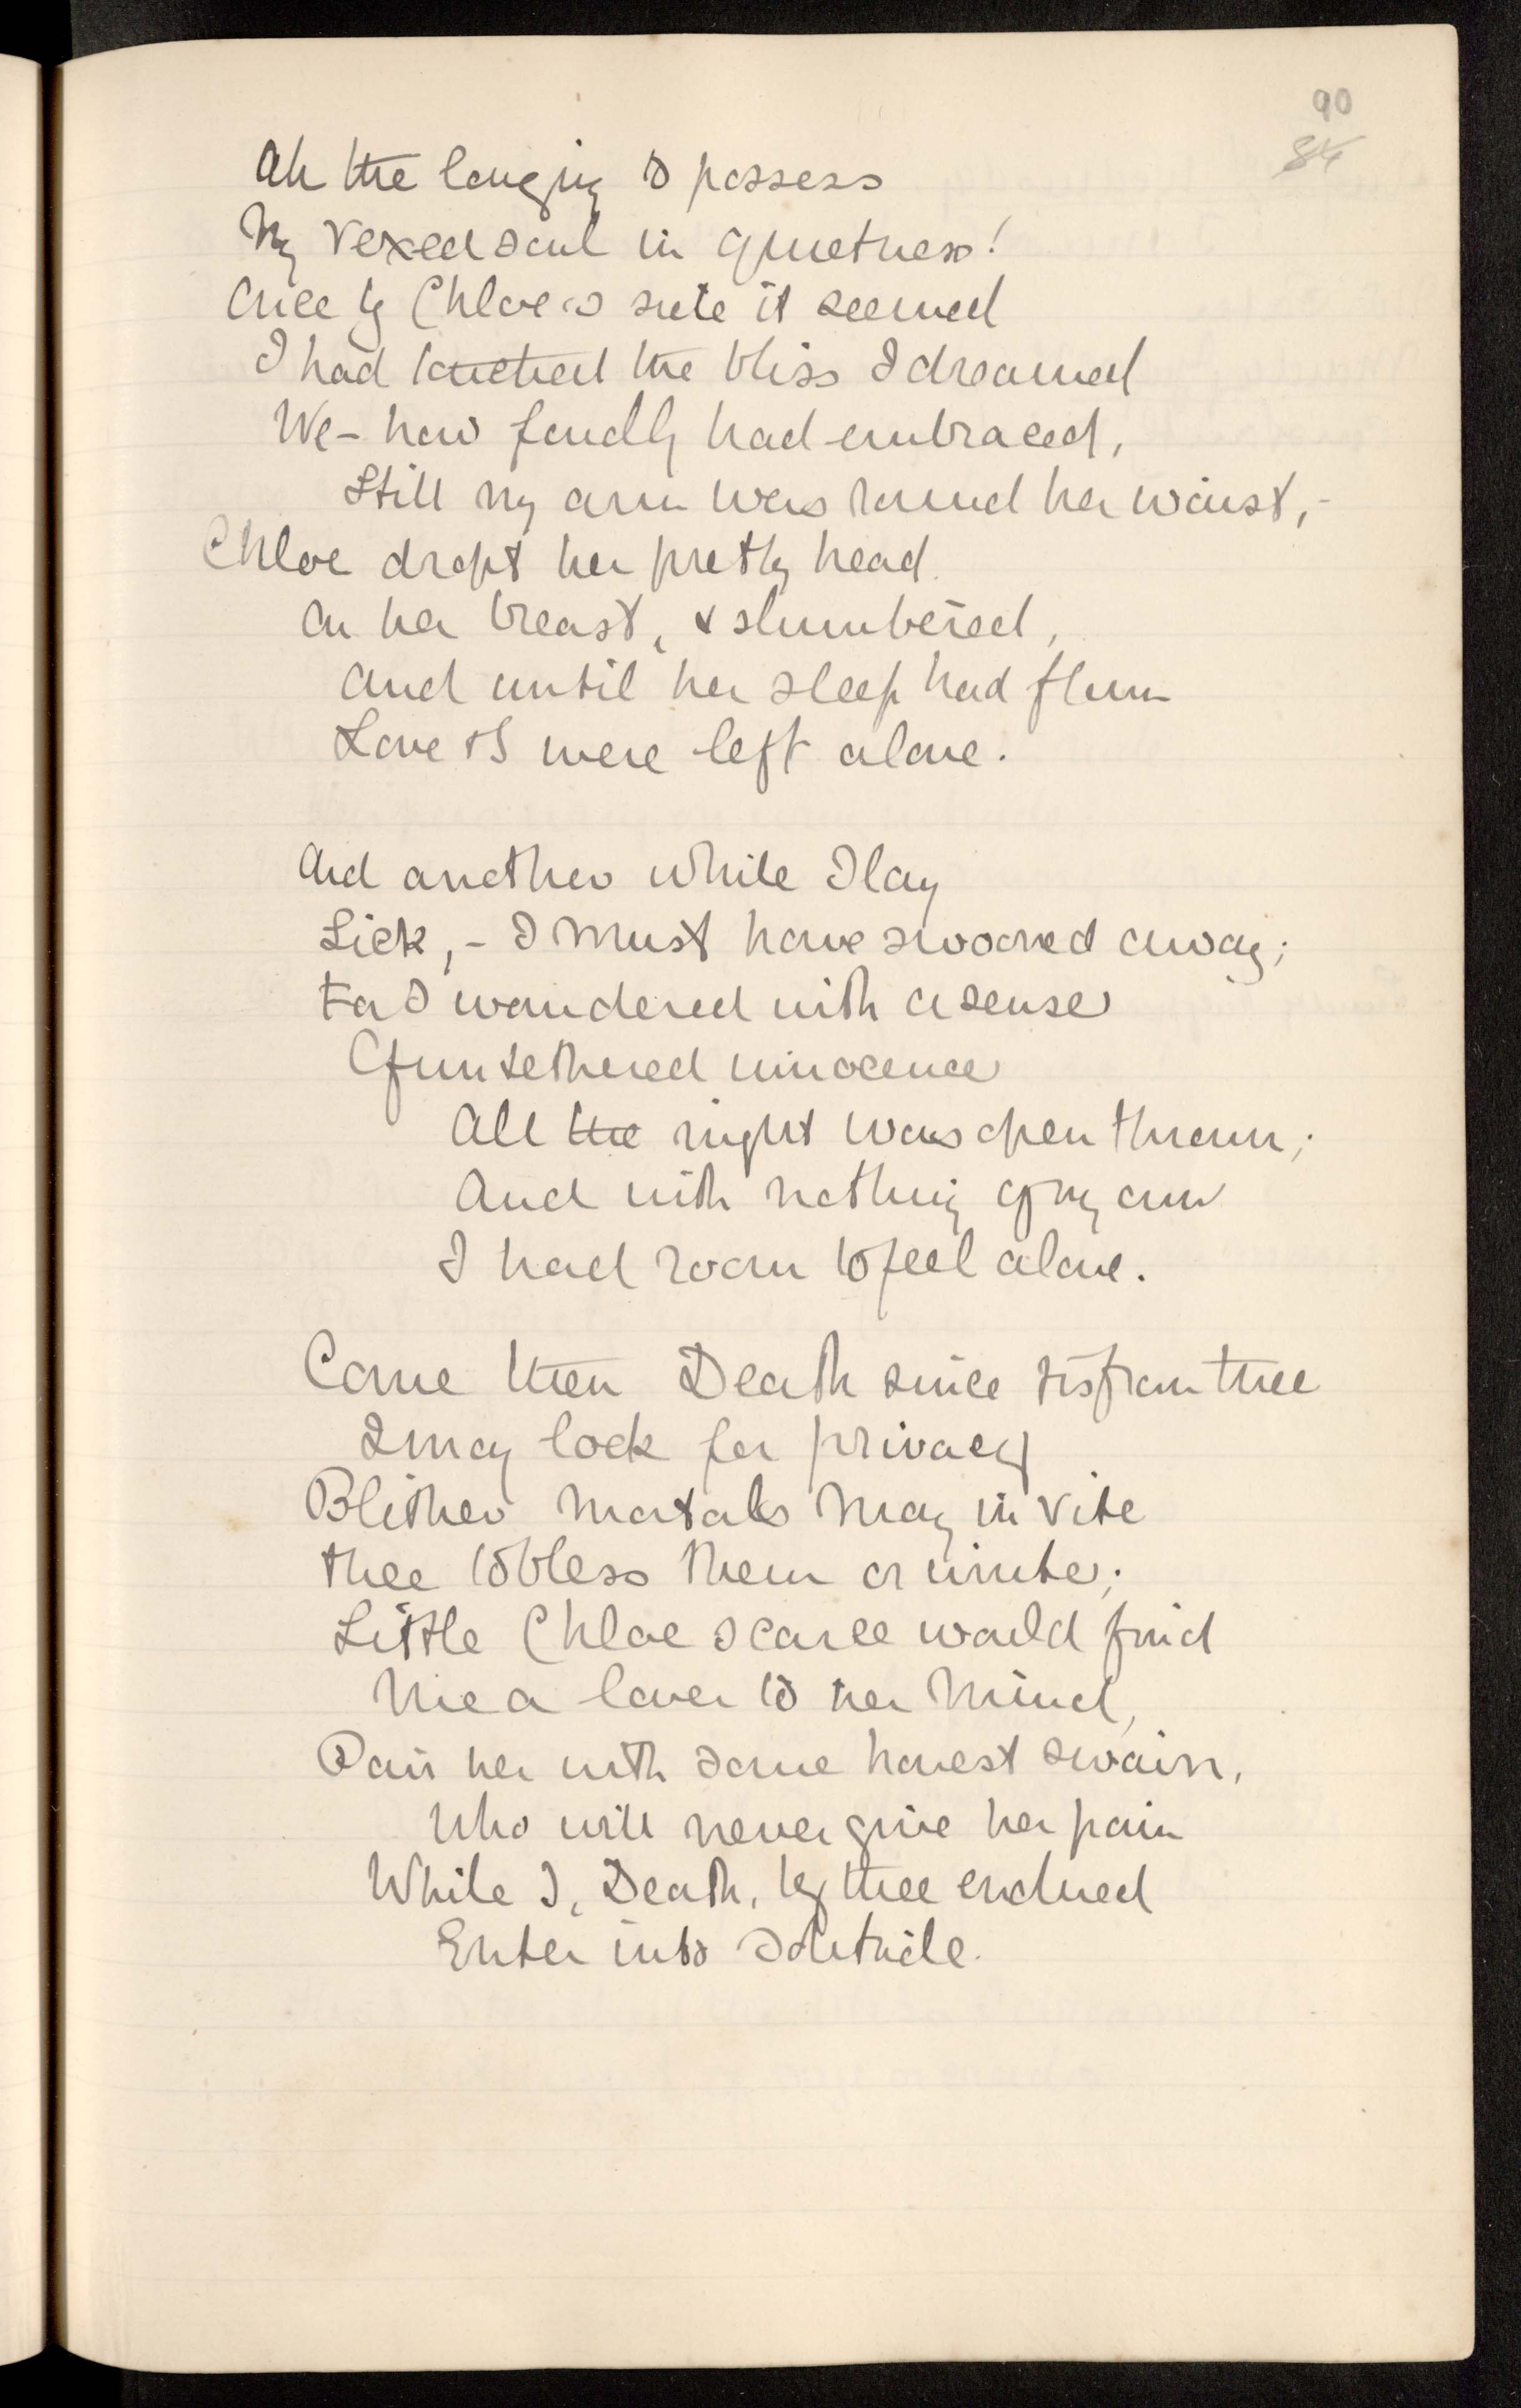 90
84
Ah the longing to possess
My vexed soul in quietness!
Once by Chloe's side it seemed
I had touched the bliss I dreamed
We - how fondly had embraced,
Still my arm was round her waist, -
Chloe dropt her pretty head
On her breast, & slumbered,
And until her sleep had flown
Love & I were left alone.
And another while I lay
Sick, - I must have swooned away;
For I wandered with a sense
Of untethered innocence
All the night was open thrown;
And with nothing of my own
I had room to feel alone.
Come then Death since 'tis from thee
I may look for privacy
Blither mortals may invite
thee to bless them or unite;
Little Chloe scarce would find
Me a lover to her mind,
Pair her with some honest swain,
Who will never give her pain
While I, Death, by thee endued
Enter into solitude.